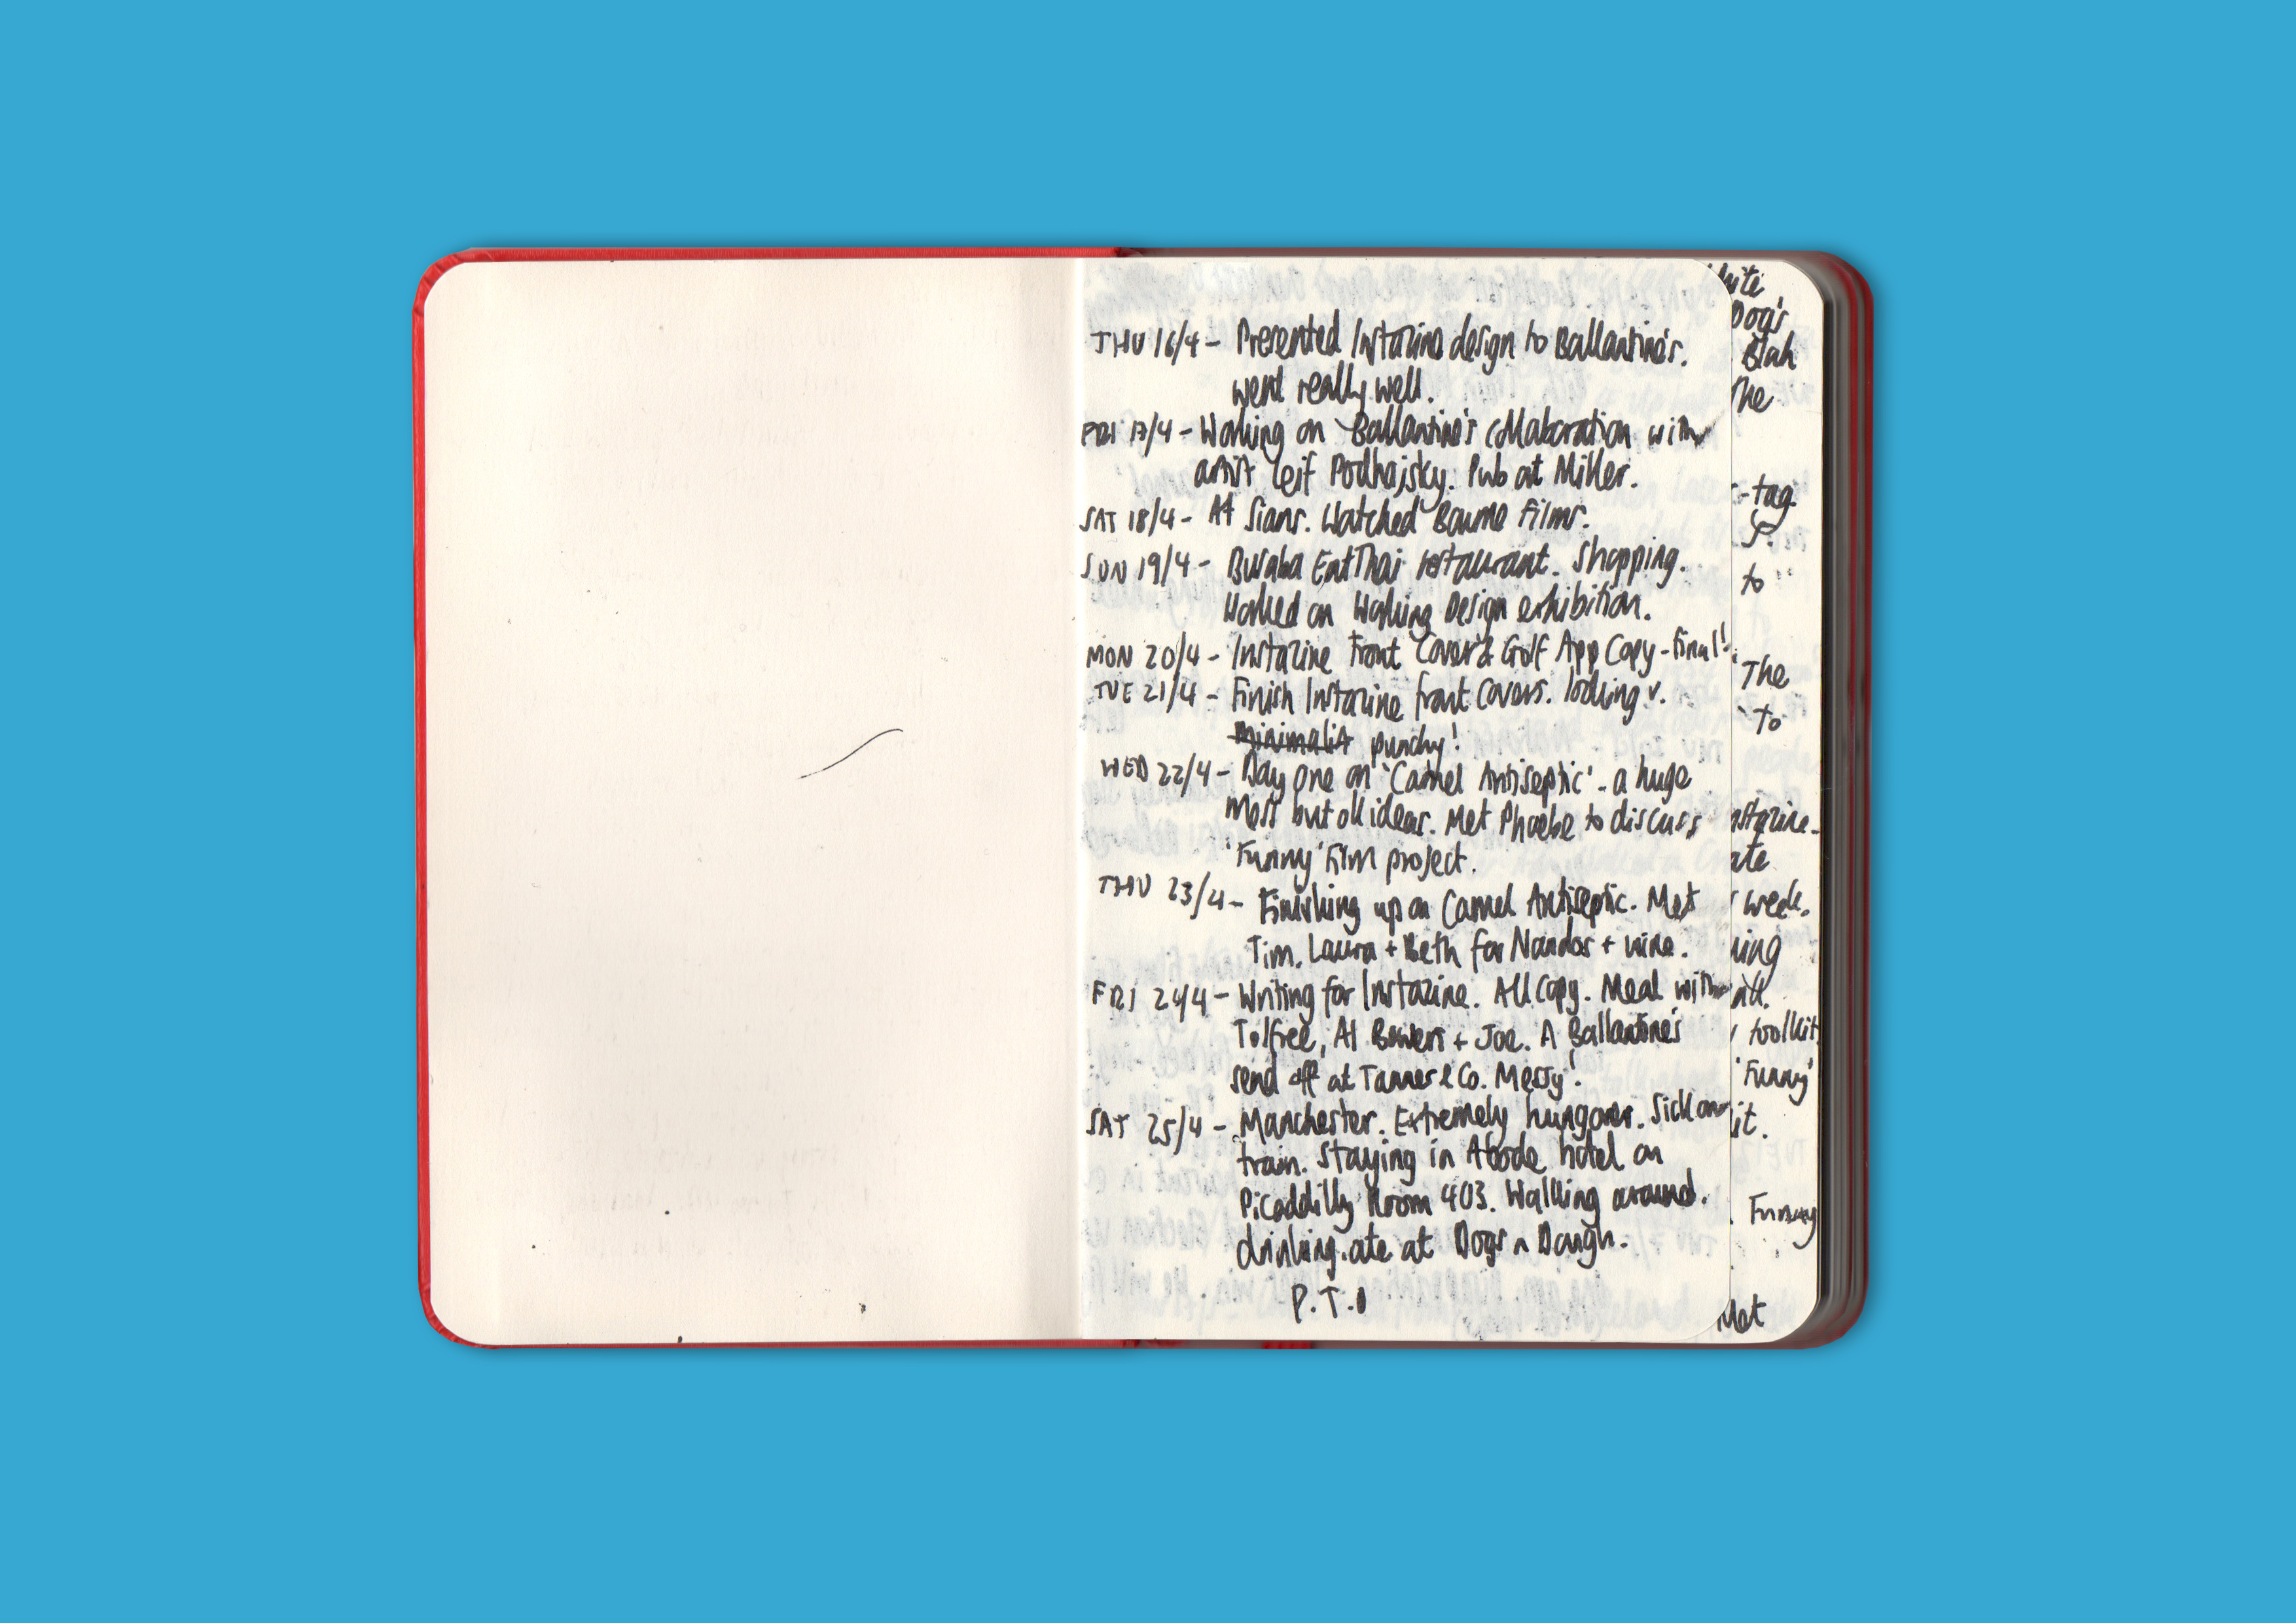 THU 16/4 - Presented Instazine design to Ballantine's.
went really well.
FRI 17/4 - Working on Ballantine's collaboration with
artist Leif Podhajsky. Pub at Miller.
SAT 18/4 - At Sians. Watched Bourne films.
SUN 19/4 - Busaba EatThai restaurant. Shopping.
Worked on Working Design exhibition.
MON 20/4 - Instazine Front Cover & Golf App Copy - final!
TUE 21/4 - Finish Instazine front covers. looking v.
minimalist punchy!
WED 22/4 - Day one on 'Camel Antiseptic' - a huge
mess but ok ideas. Met Phoebe to discuss
'Funny' Film project.
THU 23/4 - Finishing up on Camel Antiseptic. Met
Tim, Laura + Beth for Nandos + wine.
FRI 24/4 - Writing for Instazine. All Copy. Meal with
Tolfree, Al Bowers + Joe. A Ballantine's
send off at Tanner & Co. Messy!
SAT 25/4 - Manchester. Extremely hungover. Sick on
train. Staying in Abode hotel on
Picaddilly Room 403. Walking around.
drinking. ate at Dogs n Dough.
P.T.O
Dog's
Blah
The
-tag.
to
The
To
week.
toolkit
'Funny'
it.
Funny
Met